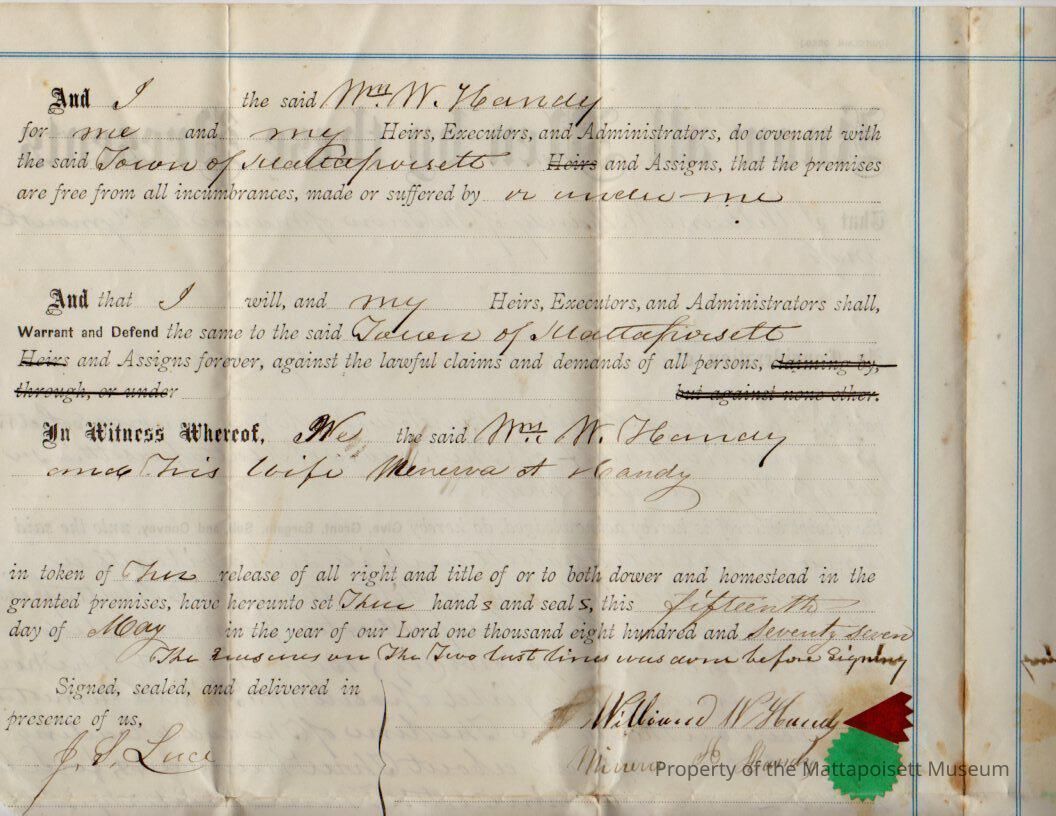 And I the said Wm. W. Handy
for me and my Heirs, Executors, and Administrators, do covenant with
the said Town of Mattapoisett Heirs and Assigns, that the premises
are free from all incumbrances, made or suffered by or under me
And that I will, and my Heirs, Executors, and Administrators shall,
Warrant and Defend the same to the said Town of Mattapoisett
Heirs and Assigns forever, against the lawful claims and demands of all persons, claiming by,
through, or under but against none other.
In Witness Whereof, We the said Wm. W. Handy
and his wife Minerva H Handy
in token of her release of all right and title of or to both dower and homestead in the
granted premises, have hereunto set their hands and seals, this fifteenth
day of May in the year of our Lord one thousand eight hundred and seventy seven
The erasures on the two last lines was done before signing
Signed, sealed, and delivered in
presence of us,
William W Handy
J. S. Luce
Minerva H Handy
Property of the Mattapoisett Museum